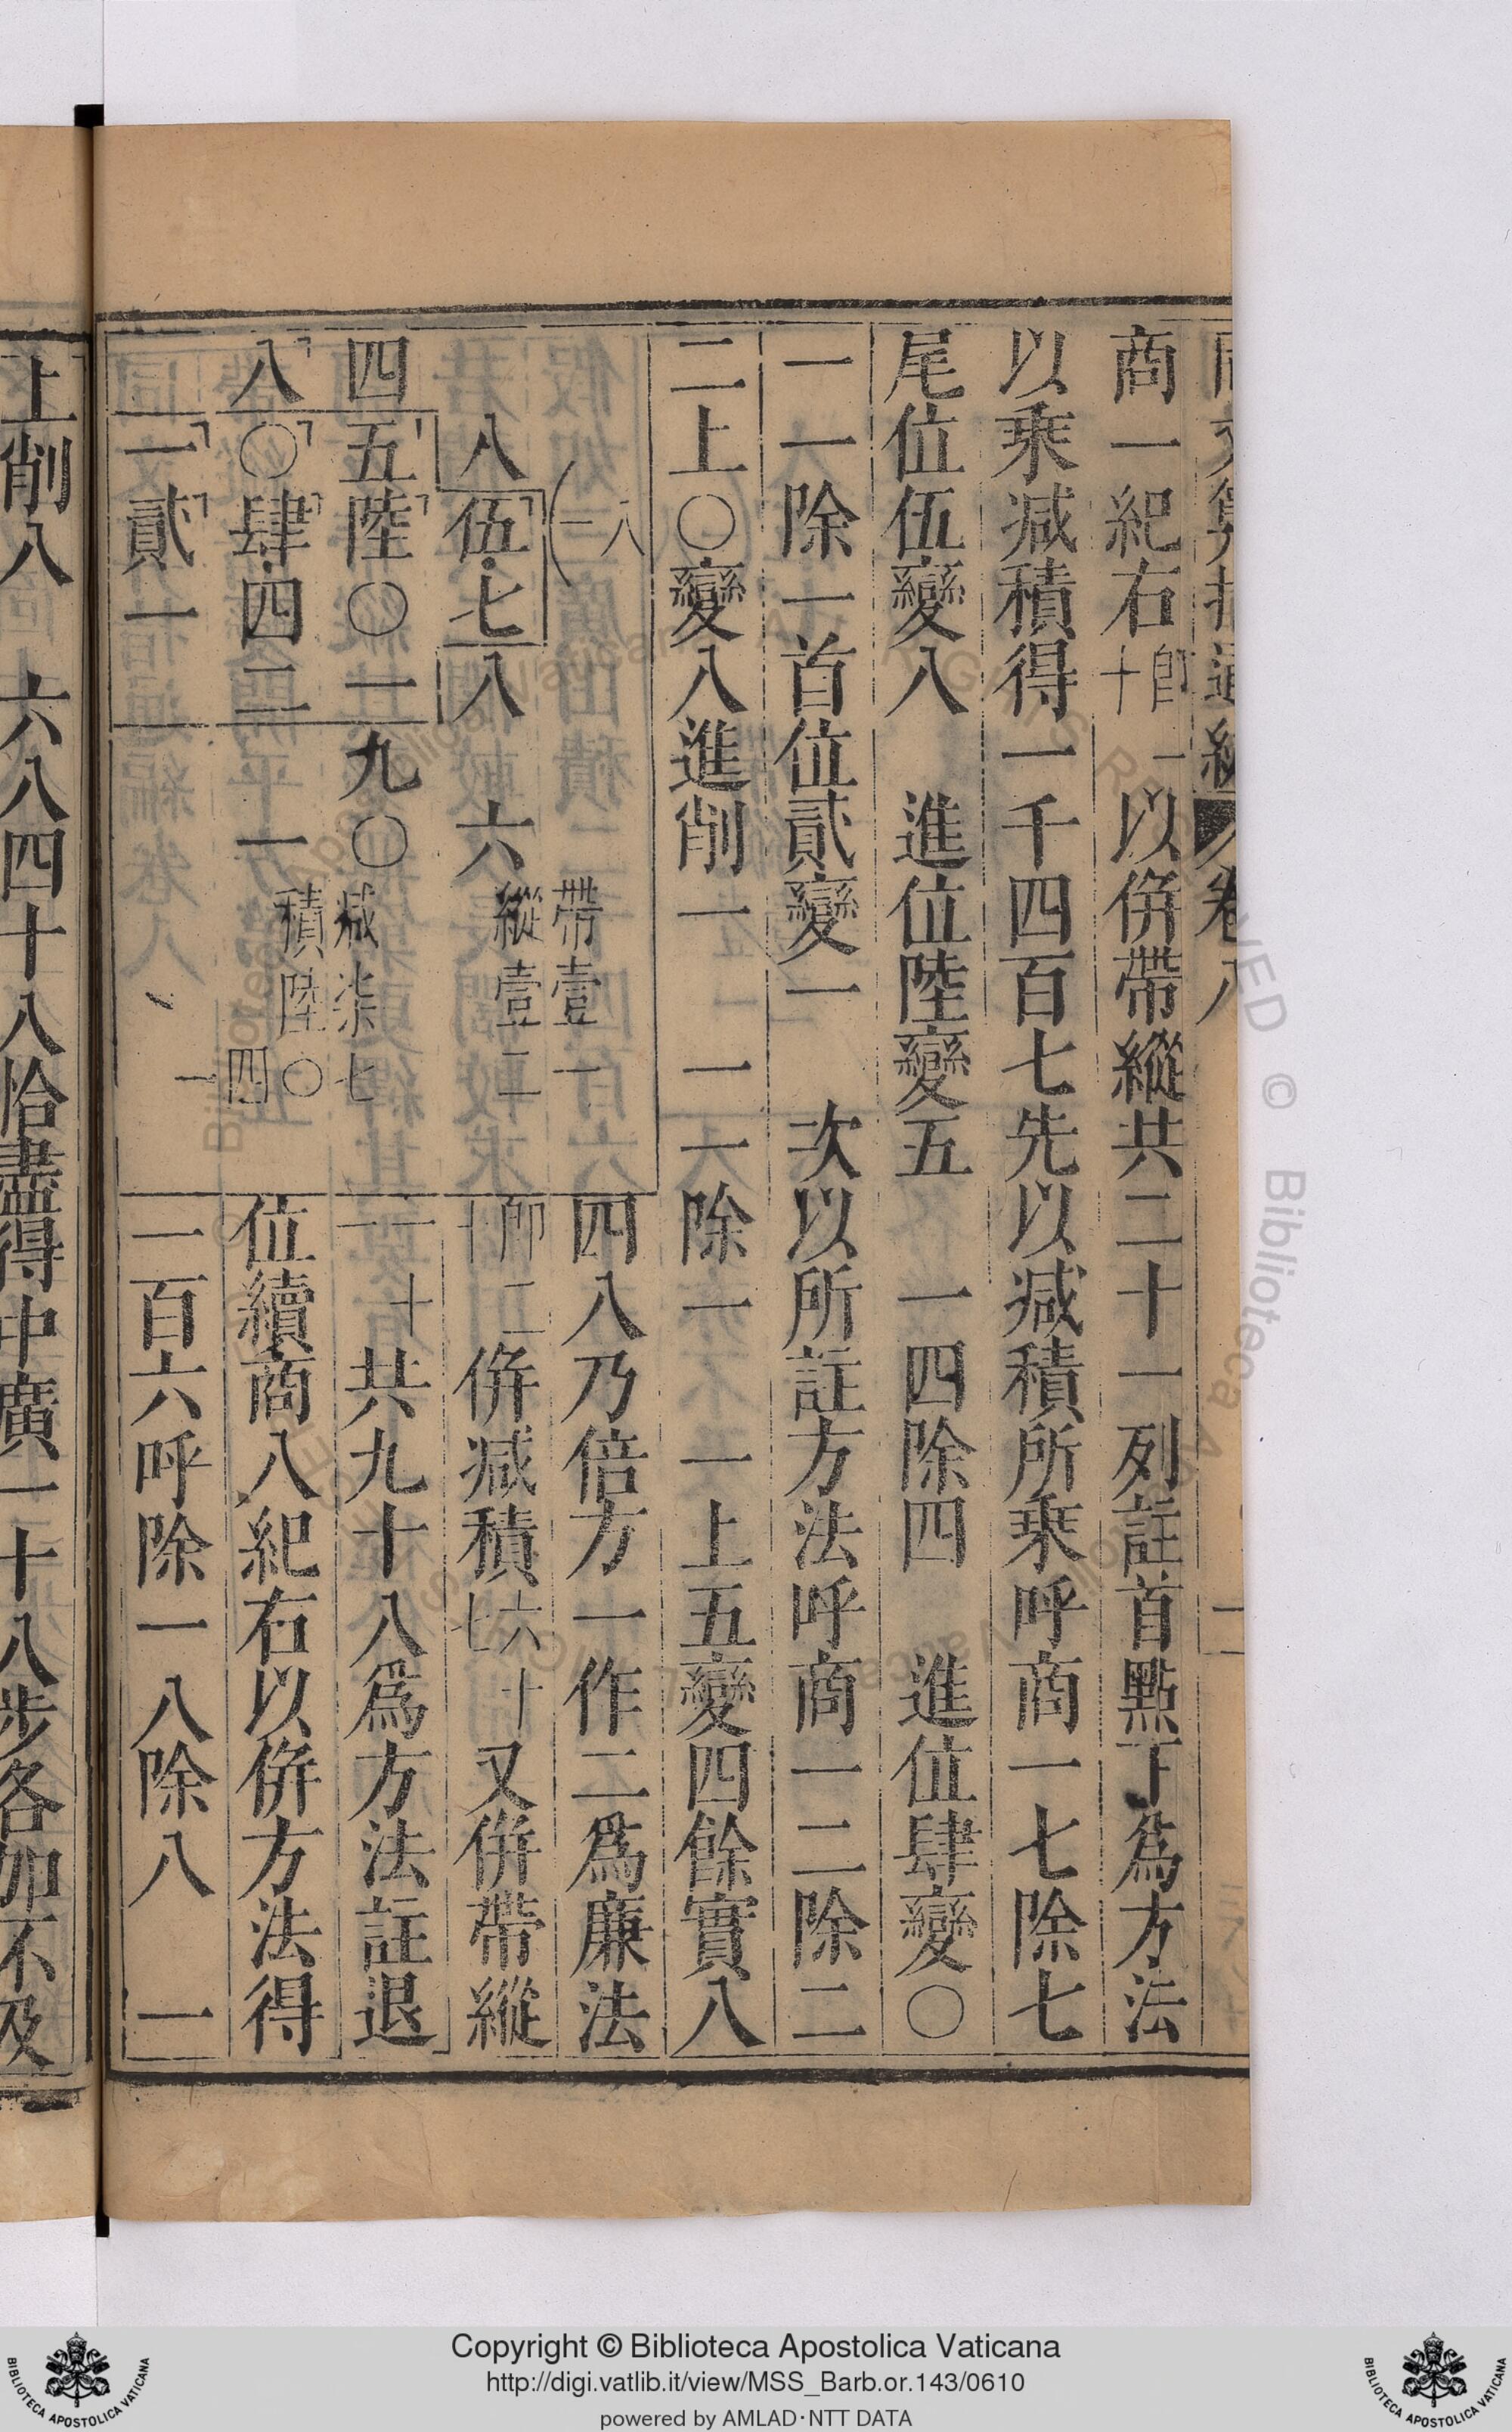 商一紀右即一十以併帶縱共二十一列註首點下為方法
以乘減積得一千四百七先以減積所乘呼商一七除七
尾位伍變八　進位陸變五　一四除四　進位肆變〇
一一除一首位貳變一　次以所註方法呼商一二除二
二上〇變八進削一　一一除一　一上五變四餘實八
四八乃倍方一作二為廉法
即二十併減積六十七又併帶縱
一十一共九十八為方法註退
位續商八紀右以併方法得
一百六呼除一八除八　一
八
三
八伍七八　六
帶縱壹壹一二
四五陸〇一九〇
減積柒陸七〇
八〇肆四二　一
四
一貳一
一
卷八
上削八　六八四十八恰盡得中廣一十八步各加不及
Copyright © Biblioteca Apostolica Vaticana
http://digi.vatlib.it/view/MSS_Barb.or.143/0610
powered by AMLAD·NTT DATA
BIBLIOTECA APOSTOLICA VATICANA
BIBLIOTECA APOSTOLICA VATICANA